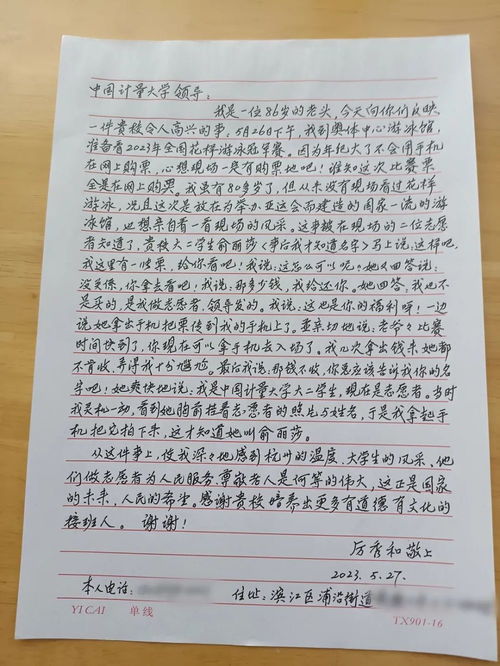 中国计量大学领导:
我是一位86岁的老头,今天向你们反映
一件贵校令人高兴的事。5月26日下午,我到奥体中心游泳馆,
准备看2023年全国花样游泳冠军赛。因为年纪大了不会用手机
在网上购票,心想现场一定有购票地吧!谁知这次比赛票
全是在网上购票。我虽有80多岁了,但从未没有现场看过花样
游泳,况且这次是在为举办亚运会而建造的国家一流的游
泳馆,也想亲自看一看现场的风采。这事被在现场的二位志愿
者知道了,贵校大二学生俞丽莎(事后我才知道名字)马上说:这样吧,
我这里有一张票,给你看吧!我说:这怎么可以呢?她又回答说:
没关系,你拿去看吧!我说:那多少钱,我给还你。她回答,我也不
是买的,是我做志愿者,领导发的。我说:这也是你的福利呀!一边
说她拿出手机把票传到我的手机上了。并亲切地说:老爷爷比赛
时间快到了,你现在可以拿手机去入场了。我几次拿出钱来,她都
不肯收,弄得我十分尴尬。最后我说:那钱不收,你总应该告诉我你的名
字吧!她爽快地说:我是中国计量大学大二学生,现在是志愿者。当时
我灵机一动,看到她胸前挂着志愿者的照片与姓名,于是我拿起手
机把它拍下来,这才知道她叫俞丽莎。
从这件事上,使我深深地感到杭州的温度、大学生的风采,他
们做志愿者为人民服务尊敬老人是何等的伟大,这正是国家
的未来,人民的希望。感谢贵校培养出更多有道德有文化的
接班人。谢谢!
厉秀和敬上
2023.5.27.
本人电话:
住址:滨江区浦沿街道
YI CAI 单线 TX901-16